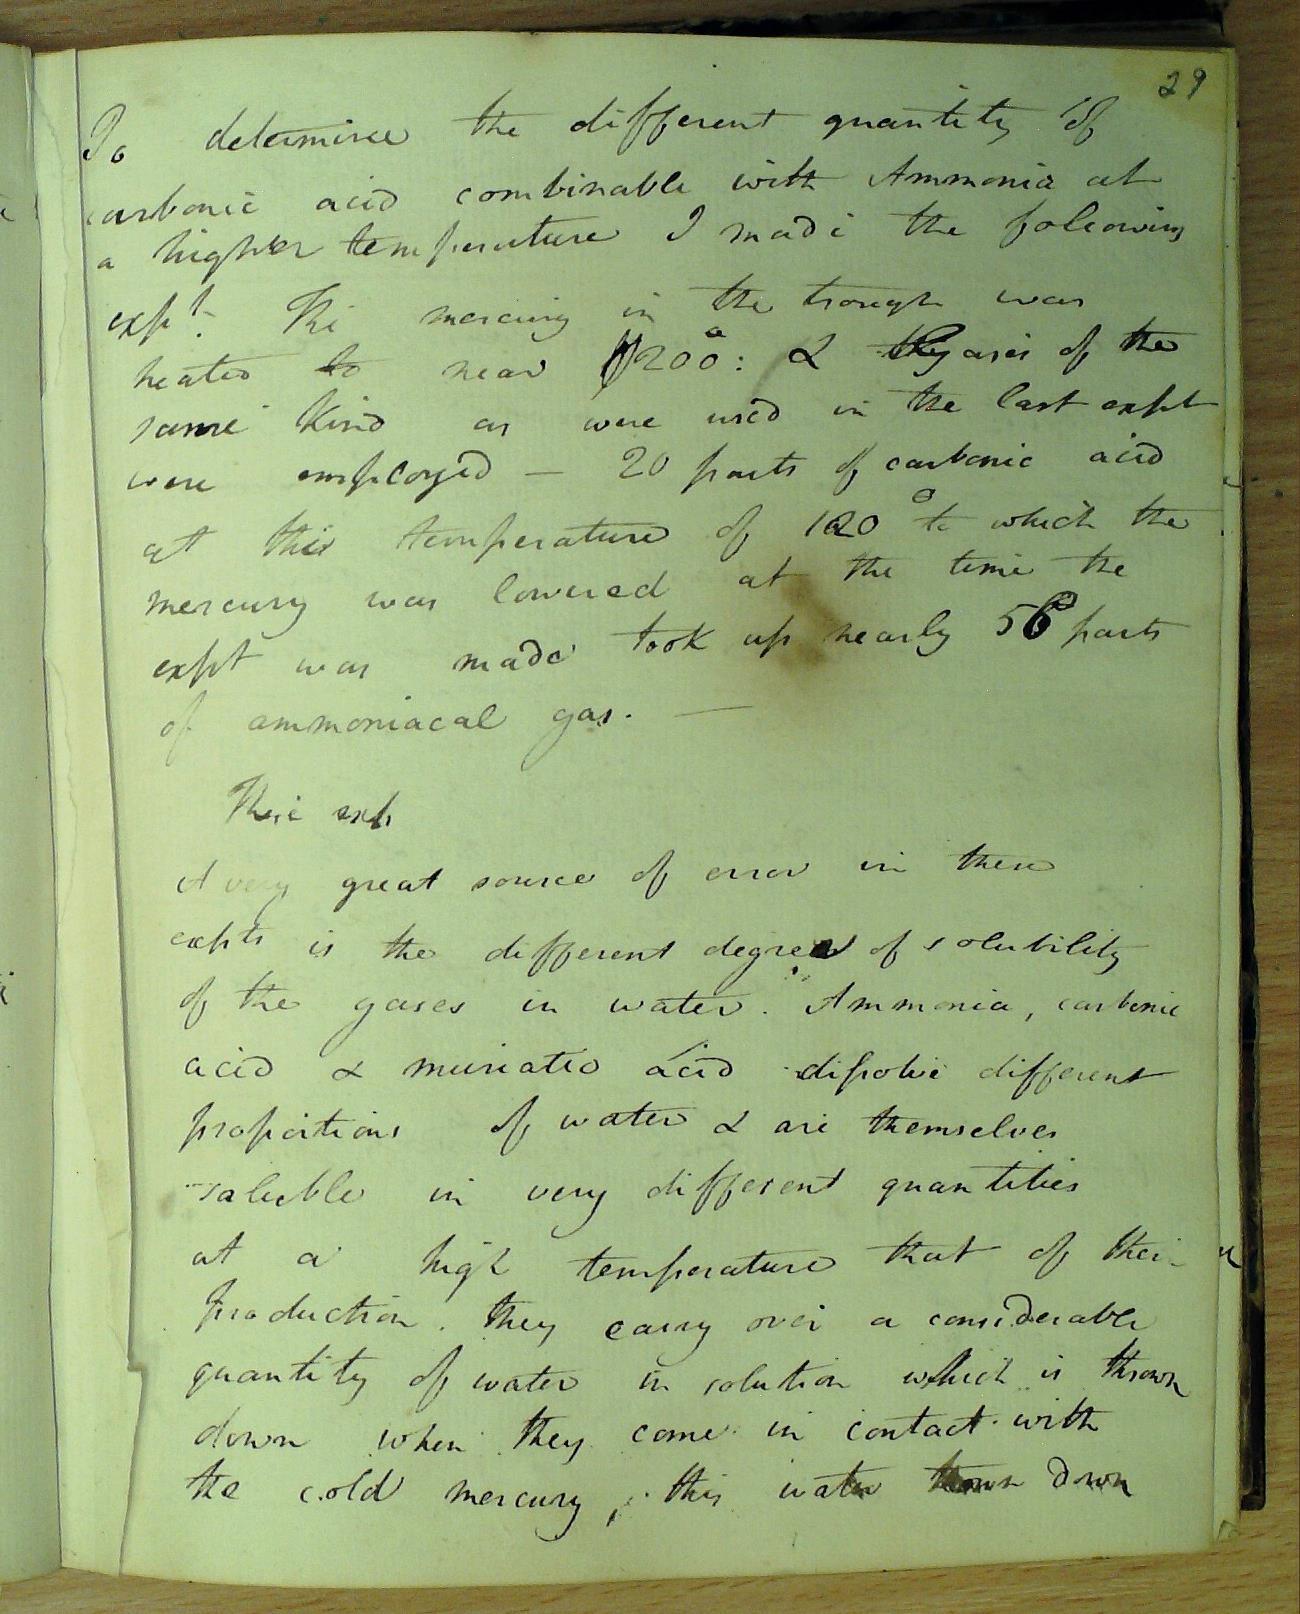 29
To determine the different quantity of
carbonic acid combinable with Ammonia at
a higher temperature I made the following
expt. The mercury in the trough was
heated to near 200°: & the gases of the
same kind as were used in the last expt
were employed — 20 parts of carbonic acid
at this temperature of 120° to which the
mercury was lowered at the time the
expt was made took up nearly 56 parts
of ammoniacal gas. —
These exp
A very great source of error in these
expts is the different degree of solubility
of the gases in water. Ammonia, carbonic
acid & muriatic acid dissolve different
proportions of water & are themselves
soluble in very different quantities
at a high temperature that of their
production. they carry over a considerable
quantity of water in solution which is thrown
down when they come in contact with
the cold mercury, this water thrown down